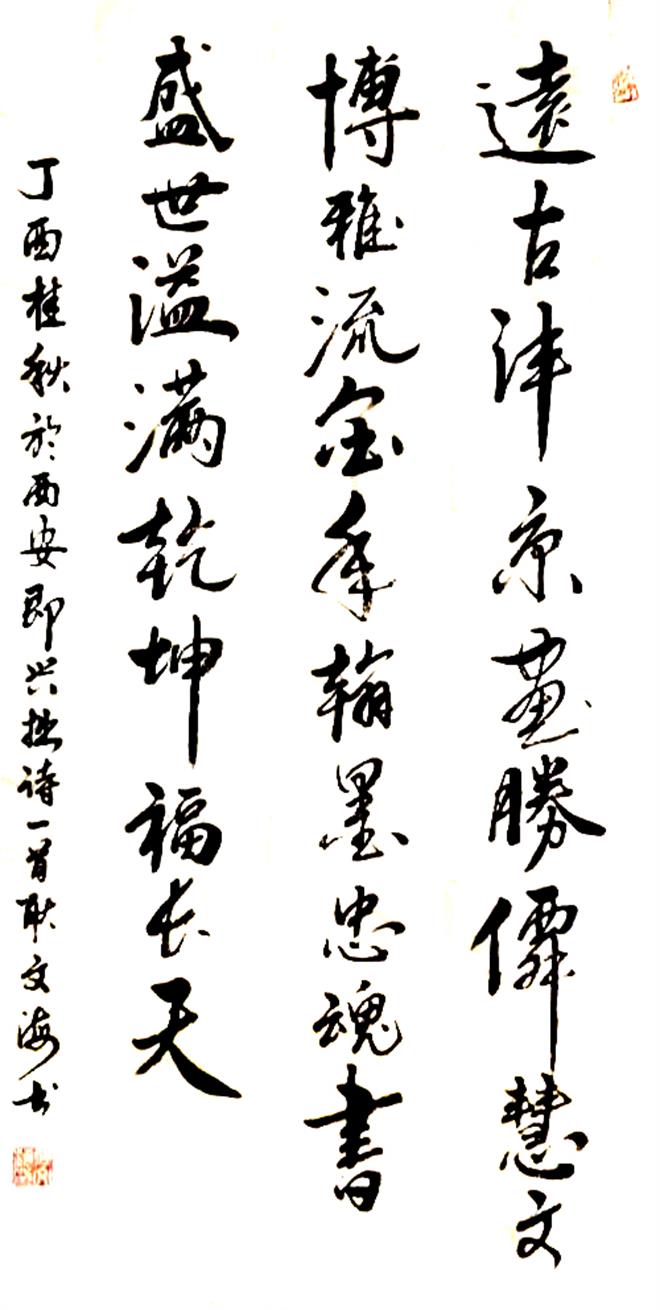 遠古津京畫勝僊慧文
博雅流金季翰墨忠魂書
盛世溢滿乾坤福长天
丁酉桂秋於西安即兴拙诗一首耿文海书